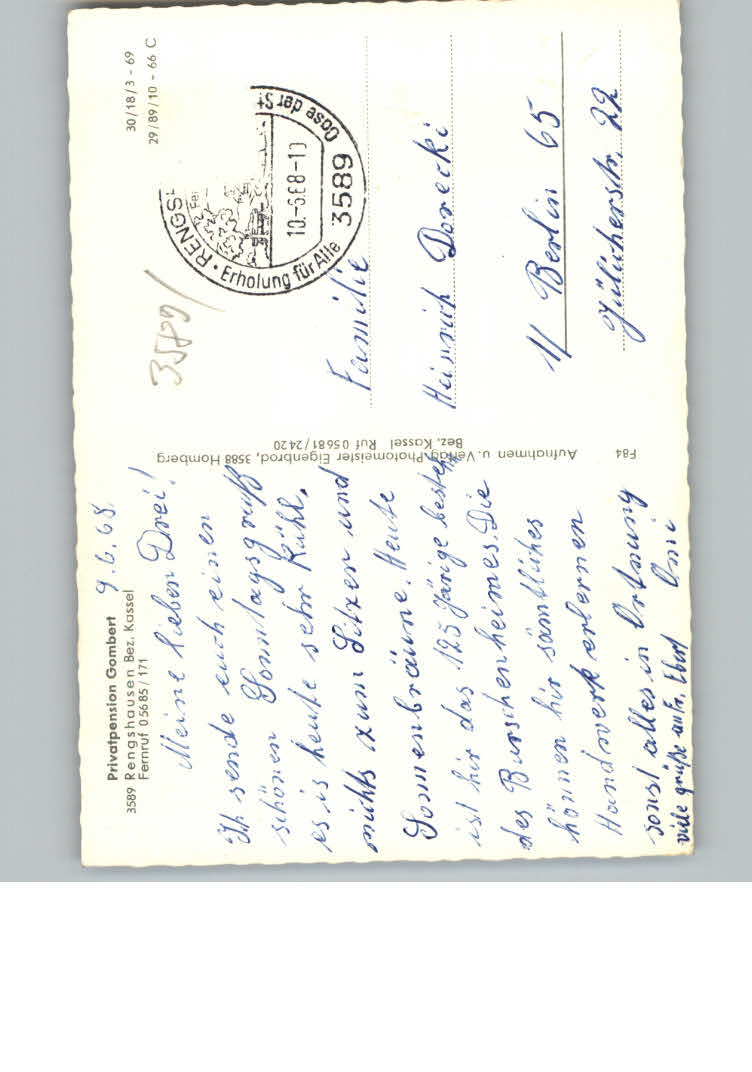 Privatpension Gombert
3589 Rengshausen Bez. Kassel
Fernruf 05685/171
9.6.68.
Meine lieben Drei!
Ich sende euch einen
schönen Sonntagsgruß
es is heute sehr kühl,
nichts zum Sitzen und
Sonnenbräune. Heute
ist hir das 125 järige bestehn
des Burschenheimes. Die
können hir sämtliches
Handwerk erlernen
sonst alles in Ortnung
viele grüße an Fr. Ebert Omi
Aufnahmen u. Verlag Photomeister Eigenbrod, 3588 Homberg
Bez. Kassel Ruf 05681/2420
F84
30/18/3 - 69
29/89/10 - 66 C
3589
RENGS
Erholung für Alle
3589 Oase der St
10.-6.68-10
Familie
Heinrich Dorecki
1/ Berlin 65
Jülicherstr. 22